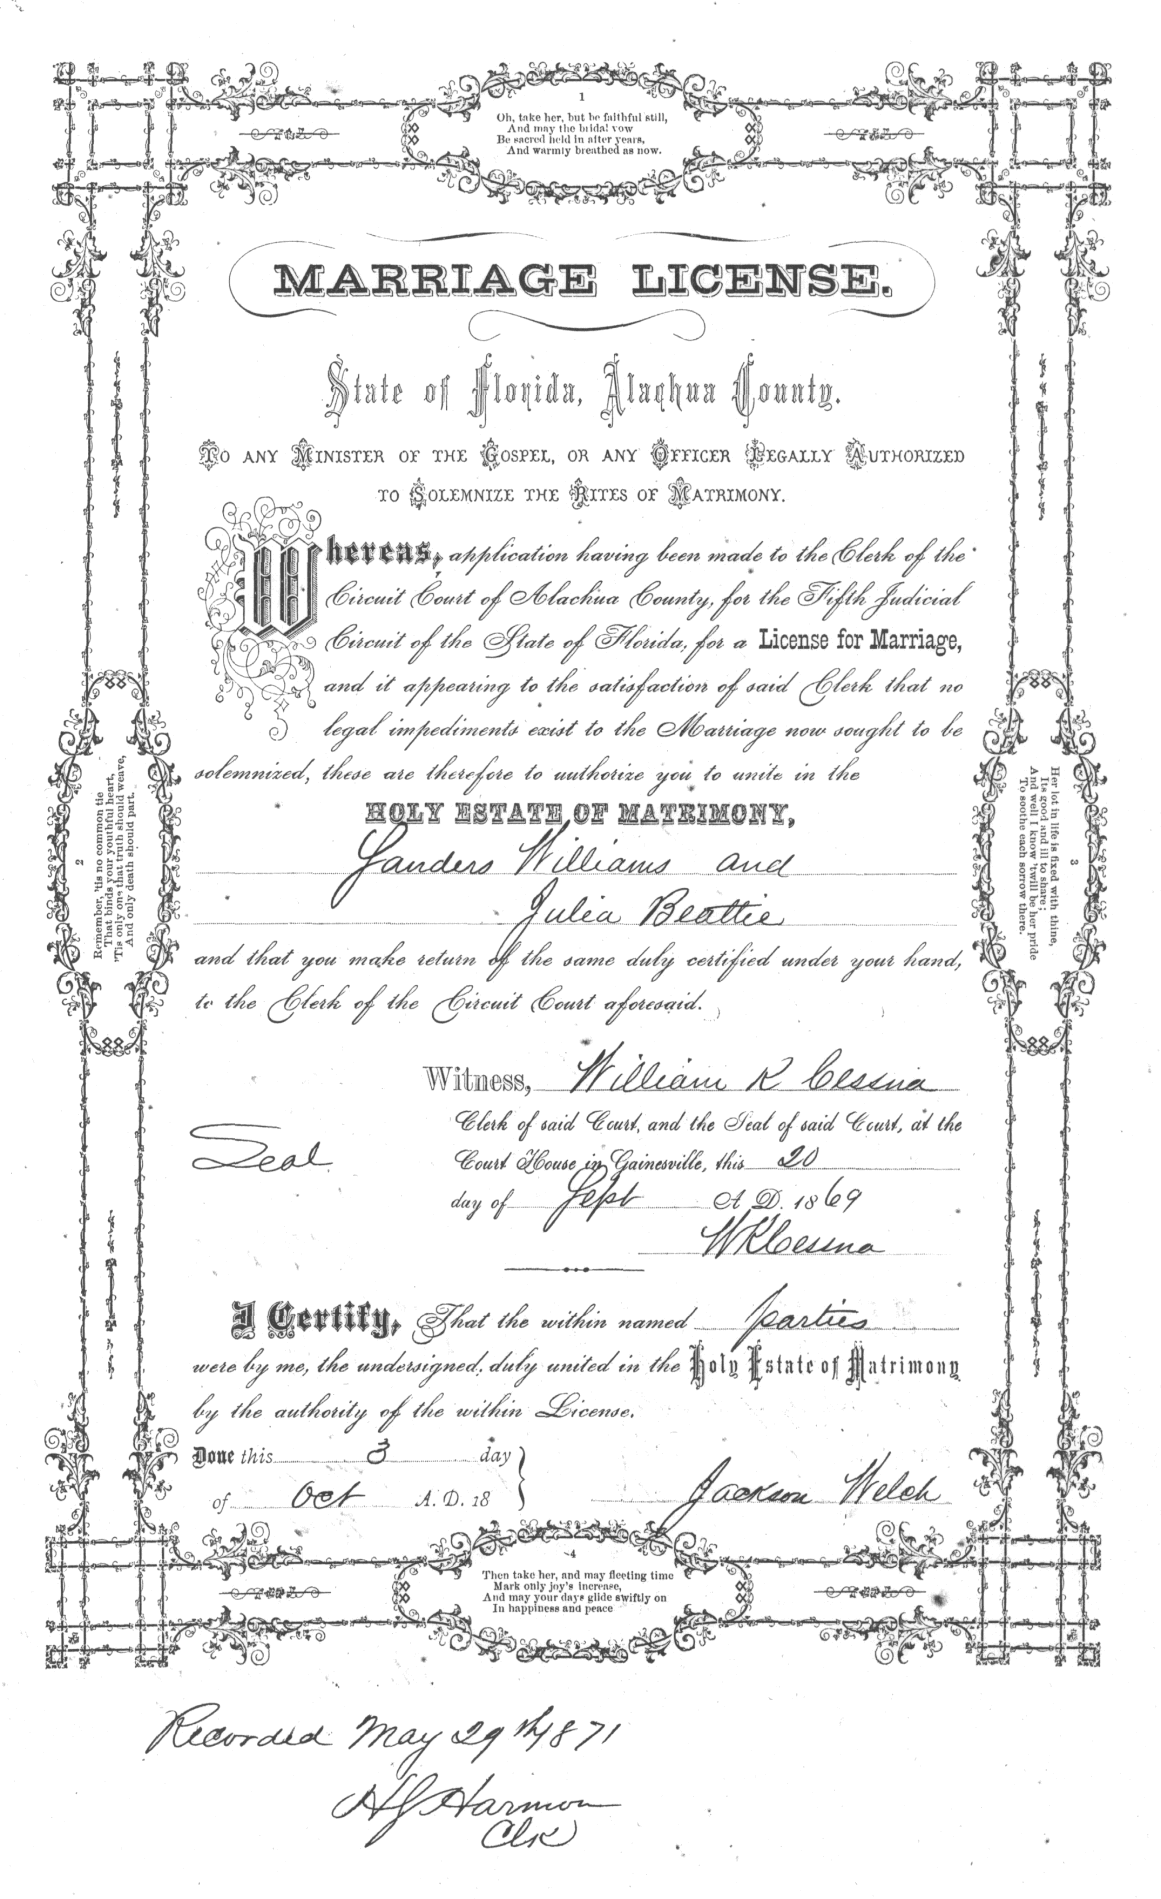 1
Oh, take her, but be faithful still,
And may the bridal vow
Be sacred held in after years,
And warmly breathed as now.
MARRIAGE LICENSE.
State of Florida, Alachua County.
TO ANY MINISTER OF THE GOSPEL, OR ANY OFFICER LEGALLY AUTHORIZED
TO SOLEMNIZE THE RITES OF MATRIMONY.
Whereas, application having been made to the Clerk of the
Circuit Court of Alachua County, for the Fifth Judicial
Circuit of the State of Florida, for a License for Marriage,
and it appearing to the satisfaction of said Clerk that no
legal impediments exist to the Marriage now sought to be
solemnized, these are therefore to authorize you to unite in the
HOLY ESTATE OF MATRIMONY,
Sanders Williams and
Julia Beattie
and that you make return of the same duly certified under your hand,
to the Clerk of the Circuit Court aforesaid.
2
Remember, 'tis no common tie
That binds your youthful heart,
'Tis only one that truth should weave,
And only death should part.
3
Her lot in life is fixed with thine,
Its good and ill to share;
And well I know 'twill be her pride
To soothe each sorrow there.
Witness, William K Cessna
Clerk of said Court, and the Seal of said Court, at the
Seal
Court House in Gainesville, this 20
day of Sept A D. 1869
WKCessna
I Certify, That the within named parties
were by me, the undersigned, duly united in the Holy Estate of Matrimony
by the authority of the within License.
Done this 3 day
of Oct A. D. 18
Jackson Welch
4
Then take her, and may fleeting time
Mark only joy's increase,
And may your days glide swiftly on
In happiness and peace
Recorded May 29th 1871
HS Harmon
Clk